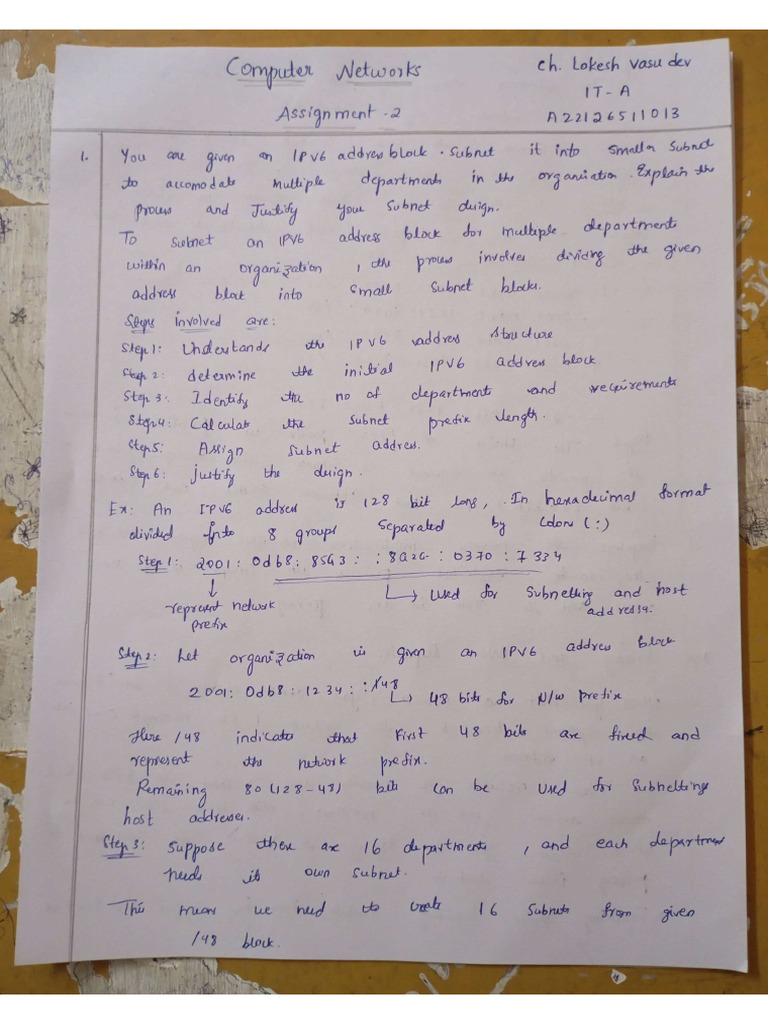 Computer Networks
Ch. Lokesh Vasu dev
IT-A
Assignment-2
A22126511013
1. You are given an IPV6 address block. Subnet it into smaller subnet
to accomodate multiple departments in the organiation. Explain the
process and Justify your subnet design.
To subnet an IPV6 address block for multiple departments
within an organization, the process involves dividing the given
address block into small subnet blocks.
Steps involved are:
Step1: Understands the IPV6 address structure
Step 2: determine the initial IPV6 address block
Step 3: Identify the no of departments and requirements
Step4: Calculate the subnet prefix length.
Step5: Assign subnet address.
Step 6: Justify the design.
Ex: An IPV6 address is 128 bit long, In hexadecimal format
divided into 8 groups separated by colon (:)
Step 1: 2001: 0db8: 85G3: :8a2G: 0370: 7334
represent network
prefix
Used for Subnetting and host
address.
Step 2: Let organization is given an IPV6 address block
2001: 0db8: 1234: :/48
48 bits for N/w prefix
Here /48 indicates that First 48 bits are fixed and
represent the network prefix.
Remaining 80 (128-48) bits can be used for subnetting
host addresses.
Step 3: Suppose there are 16 departments, and each department
needs its own subnet.
This means we need to create 16 subnets from given
/48 block.